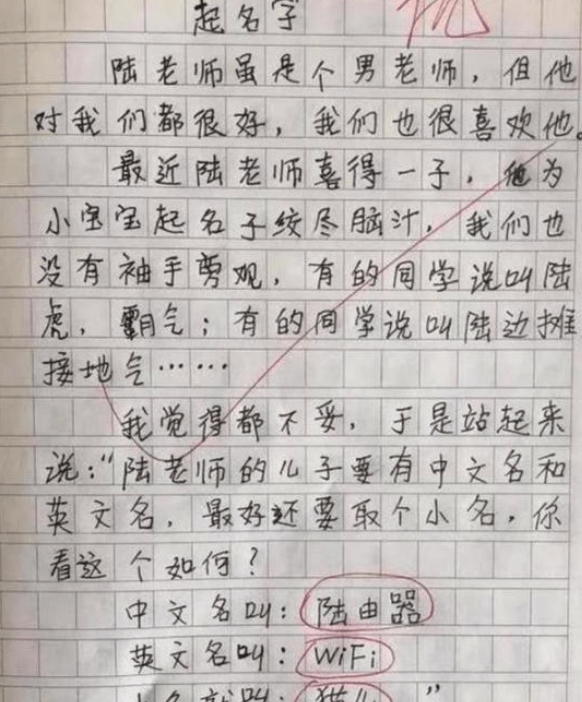 起名字
陆老师虽是个男老师，但他
对我们都很好，我们也很喜欢他。
最近陆老师喜得一子，他为
小宝宝起名子绞尽脑汁，我们也
没有袖手旁观，有的同学说叫陆
虎，霸气；有的同学说叫陆边摊
接地气……
我觉得都不妥，于是站起来
说：“陆老师的儿子要有中文名和
英文名，最好还要取个小名，你
看这个如何？
中文名叫：陆由器
英文名叫：WiFi
小名就叫：猫儿”